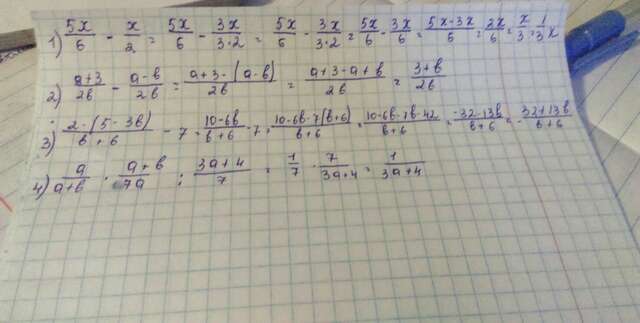 1) 5x/6 - x/2 = 5x/6 - 3x/3·2 = 5x/6 - 3x/3·2 = 5x/6 - 3x/6 = 5x-3x/6 = 2x/6 = x/3 = 1/3 x
2) a+3/2b - a-b/2b = a+3-(a-b)/2b = a+3-a+b/2b = 3+b/2b
3) 2·(5-3b)/b+6 - 7 = 10-6b/b+6 - 7 = 10-6b-7(b+6)/b+6 = 10-6b-7b-42/b+6 = -32-13b/b+6 = -32+13b/b+6
4) a/a+b · a+b/7a : 3a+4/7 = 1/7 · 7/3a+4 = 1/3a+4